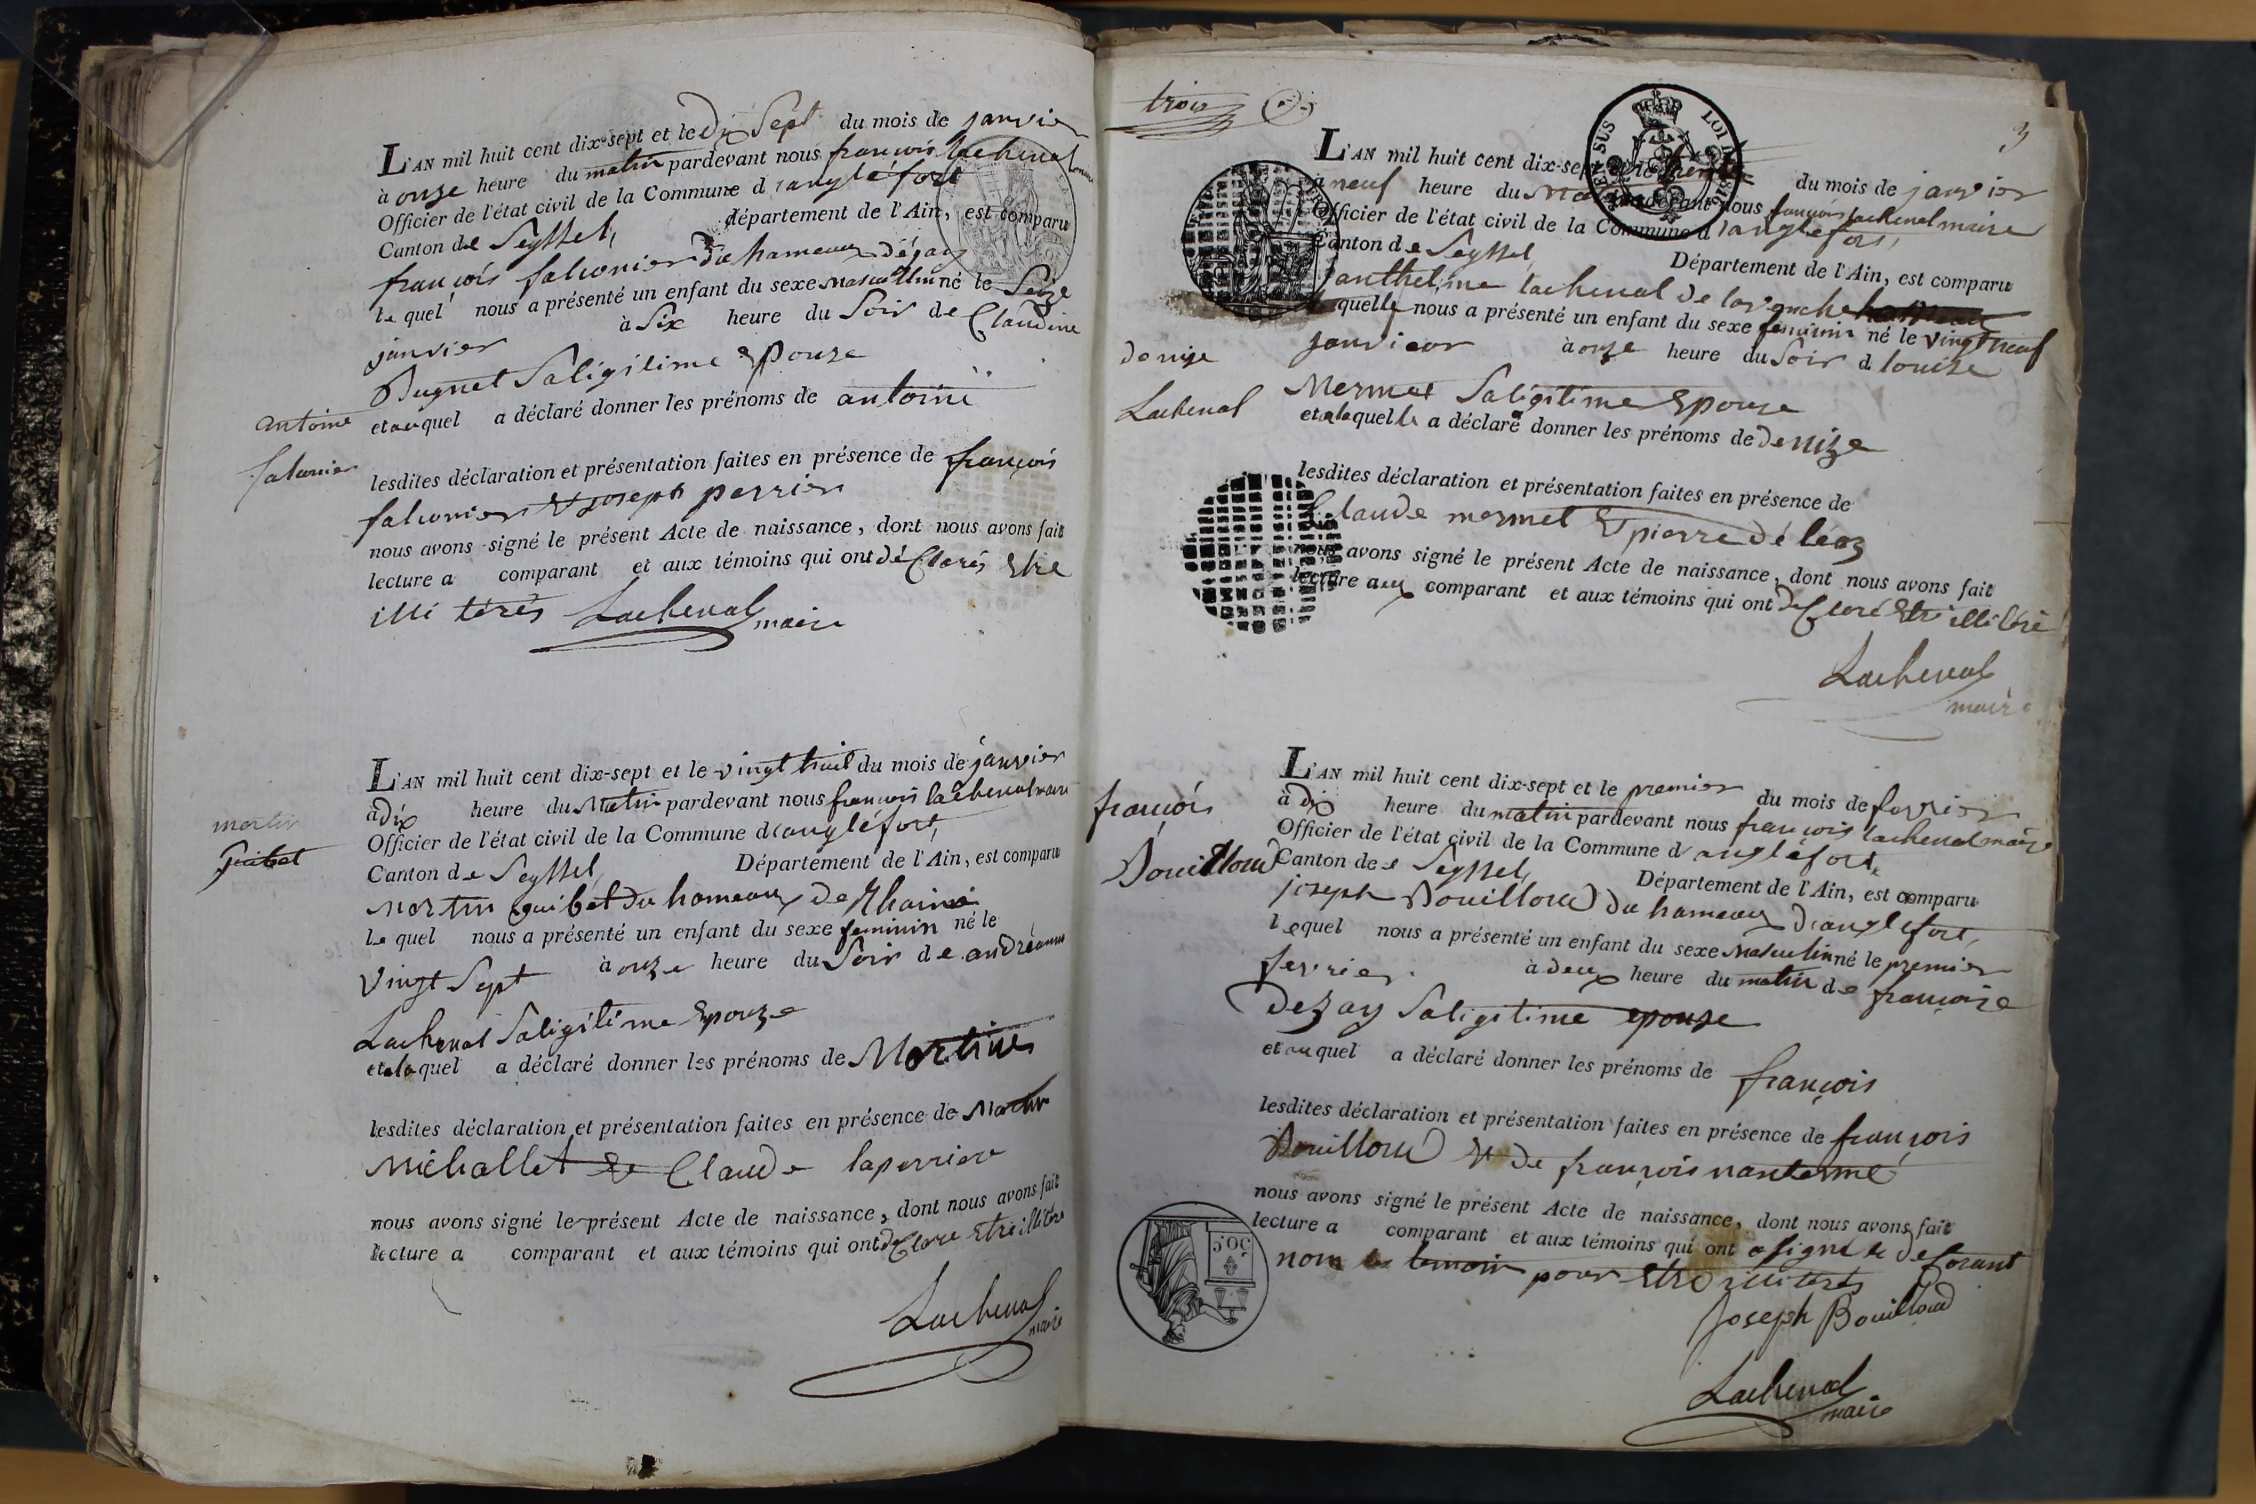 L'AN mil huit cent dix-sept et le dix Sept du mois de janvier
à onze heure du matin pardevant nous françois lachenal
Officier de l'état civil de la Commune d'anglefort
Canton de Seyssel, département de l'Ain, est comparu
françois falconier du hameaux
le quel nous a présenté un enfant du sexe masculin né le Seize
janvier à Six heure du Soir de Claudine
Bugnet Saligitime Epouze
et auquel a déclaré donner les prénoms de antoine
antoine
falconier
lesdites déclaration et présentation faites en présence de françois
falconier & joseph perrier
nous avons signé le présent Acte de naissance, dont nous avons fait
lecture a comparant et aux témoins qui ont déClarés Etre
illi térés Lachenal maire
L'AN mil huit cent dix-sept et le vingt huit du mois de janvier
à dix heure du Matin pardevant nous françois lachenal maire
Officier de l'état civil de la Commune d'anglefort,
Canton de Seyssel, Département de l'Ain, est comparu
martin
guibet
Martin guibet du hameaux de
Le quel nous a présenté un enfant du sexe feminin né le
vingt Sept à onze heure du Soir de andréanne
Lachenal Saligitime Epouze
et a la quel a déclaré donner les prénoms de Martine
lesdites déclaration et présentation faites en présence de Martin
Michallet & Claude laperriere
nous avons signé le présent Acte de naissance, dont nous avons fait
lecture a comparant et aux témoins qui ont deClare Etre illitere
Lachenal
maire
trois
3
L'AN mil huit cent dix-sept et le trente du mois de janvier
à neuf heure du Matin pardevant nous françois lachenal maire
Officier de l'état civil de la Commune d'anglefort,
Canton de Seyssel, Département de l'Ain, est comparu
anthelme lachenal de
la quelle nous a présenté un enfant du sexe feminin né le vingt neuf
janvier à onze heure du Soir d louise
denize
Lachenal
Mermet Saligitime Epouze
et a laquelle a déclaré donner les prénoms de denize
lesdites déclaration et présentation faites en présence de
Claude mermet & pierre déléaz
nous avons signé le présent Acte de naissance, dont nous avons fait
lecture aux comparant et aux témoins qui ont deClaré Etre illiteré
Lachenal
maire
L'AN mil huit cent dix-sept et le premier du mois de fevrier
à dix heure du matin pardevant nous françois lachenal maire
Officier de l'état civil de la Commune d'anglefort,
françois
Bouilloud
Canton de Seyssel, Département de l'Ain, est comparu
joseph Bouilloud du hameaux d'anglefort,
lequel nous a présenté un enfant du sexe masculin né le premier
fevrier à deux heure du matin de françoise
Dezay Saligitime epouse
et au quel a déclaré donner les prénoms de françois
lesdites déclaration et présentation faites en présence de françois
Bouilloud & de françois nantermé
nous avons signé le présent Acte de naissance, dont nous avons fait
lecture a comparant et aux témoins qui ont a signé le deClorant
50C
non les temoin pour Etre illiterés
Joseph Bouilloud
Lachenal
maire